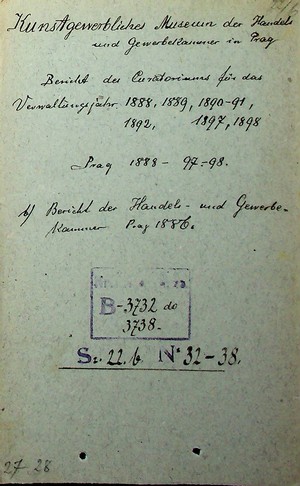 Kunstgewerbliches Museum der Handels
und Gewerbekammer in Prag
Bericht des Curatoriums für das
Verwaltungsjahr 1888, 1889, 1890-91,
1892, 1897, 1898
Prag 1888 - 97-98.
b) Bericht der Handels- und Gewerbe-
kammer Prag 1886.
B-3732 do
3738-
Sz. 22. b. Nº 32-38.
27-28